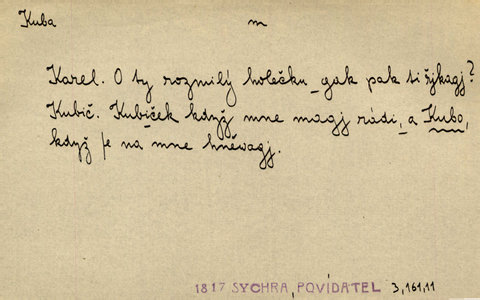 Kuba m
Karel. O ty rozmilý holečku gak pak ti řjkagj?
Kubič. Kubíček když mne magj rádi, a Kubo,
když se na mne hněwagj.
1817 SYCHRA, POVÍDATEL 3,161,11